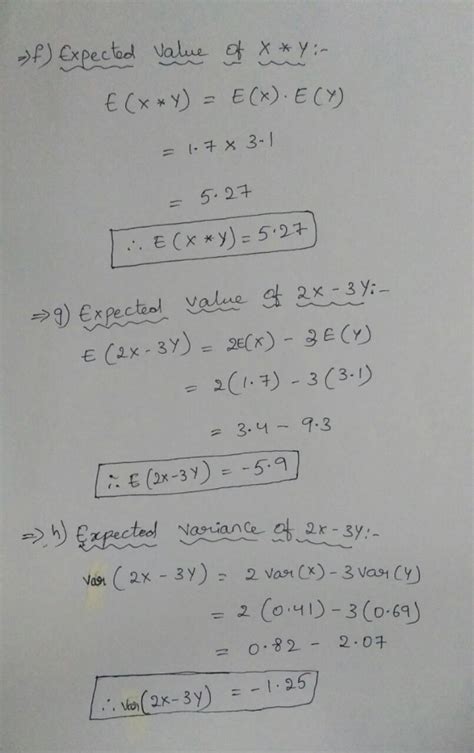 ⇒ f) Expected Value of X * Y:-
E(X * Y) = E(X) · E(Y)
= 1.7 × 3.1
= 5.27
∴ E(X * Y) = 5.27
⇒ g) Expected value of 2X - 3Y:-
E(2X - 3Y) = 2E(X) - 3E(Y)
= 2(1.7) - 3(3.1)
= 3.4 - 9.3
∴ E(2X-3Y) = -5.9
⇒ h) Expected variance of 2X-3Y:-
Var(2X - 3Y) = 2 Var(X) - 3 Var(Y)
= 2(0.41) - 3(0.69)
= 0.82 - 2.07
∴ Var(2X-3Y) = -1.25